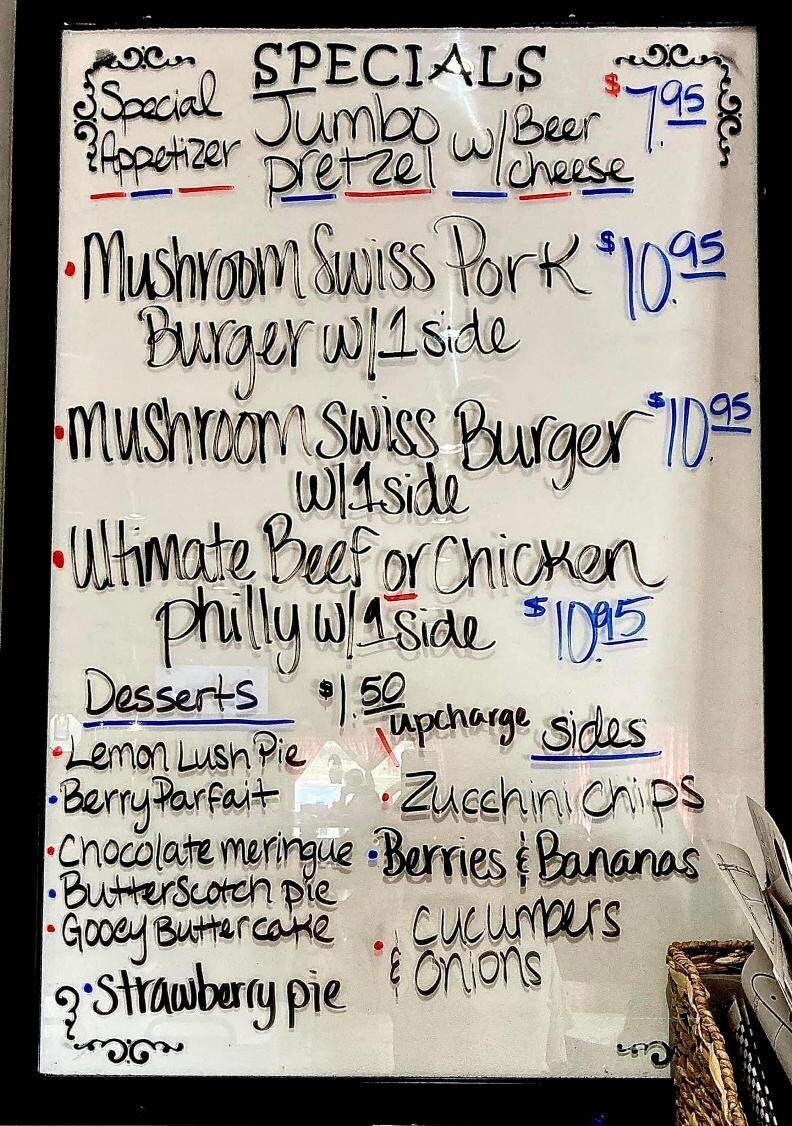 SPECIALS
Special Appetizer
Jumbo pretzel w/ Beer cheese $7.95
• Mushroom Swiss Pork $10.95
Burger w/1 side
• Mushroom Swiss Burger $10.95
w/1 side
• Ultimate Beef or Chicken
philly w/1 side $10.95
Desserts
• Lemon Lush Pie
• Berry Parfait
• Chocolate meringue
• Butterscotch pie
• Gooey Butter cake
• Strawberry pie
$1.50 upcharge
sides
• Zucchini Chips
• Berries & Bananas
• Cucumbers
& Onions